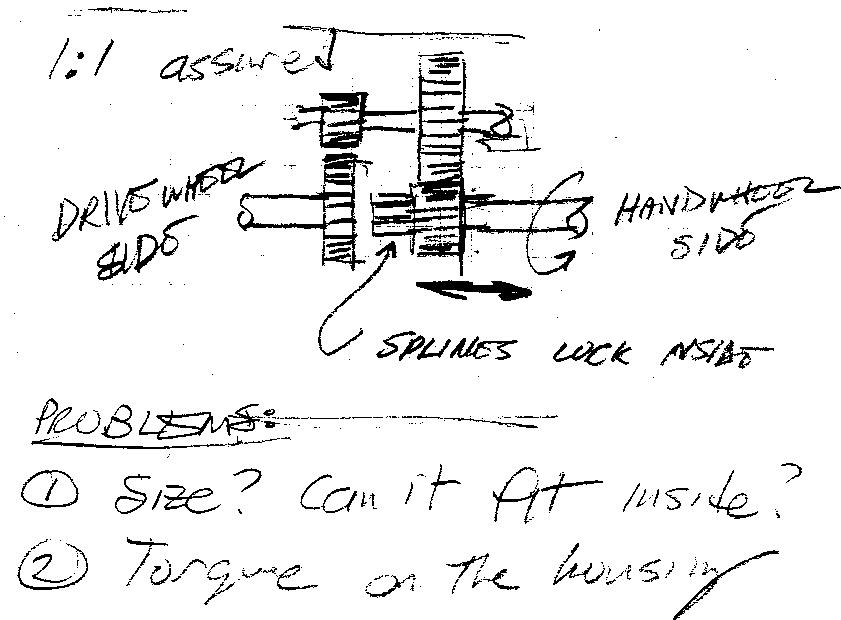 1:1 assured
DRIVE WHEEL
SIDE
HANDWHEEL
SIDE
SPLINES LOCK INSIDE
PROBLEMS:
① Size? Can it fit inside?
② Torque on the housing